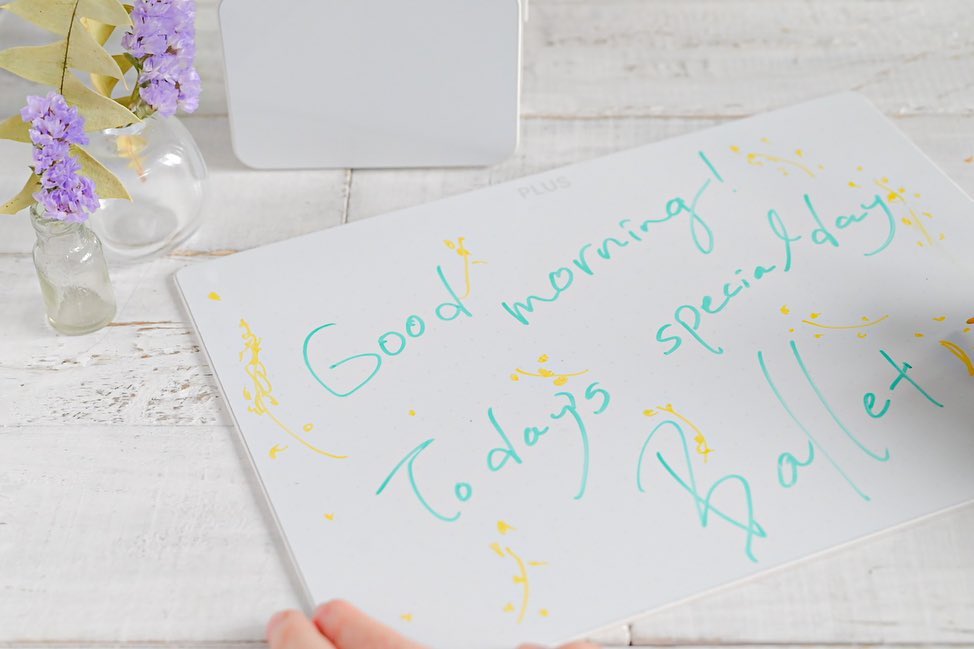 PLUS
Good morning!
Today's special day
Ballet